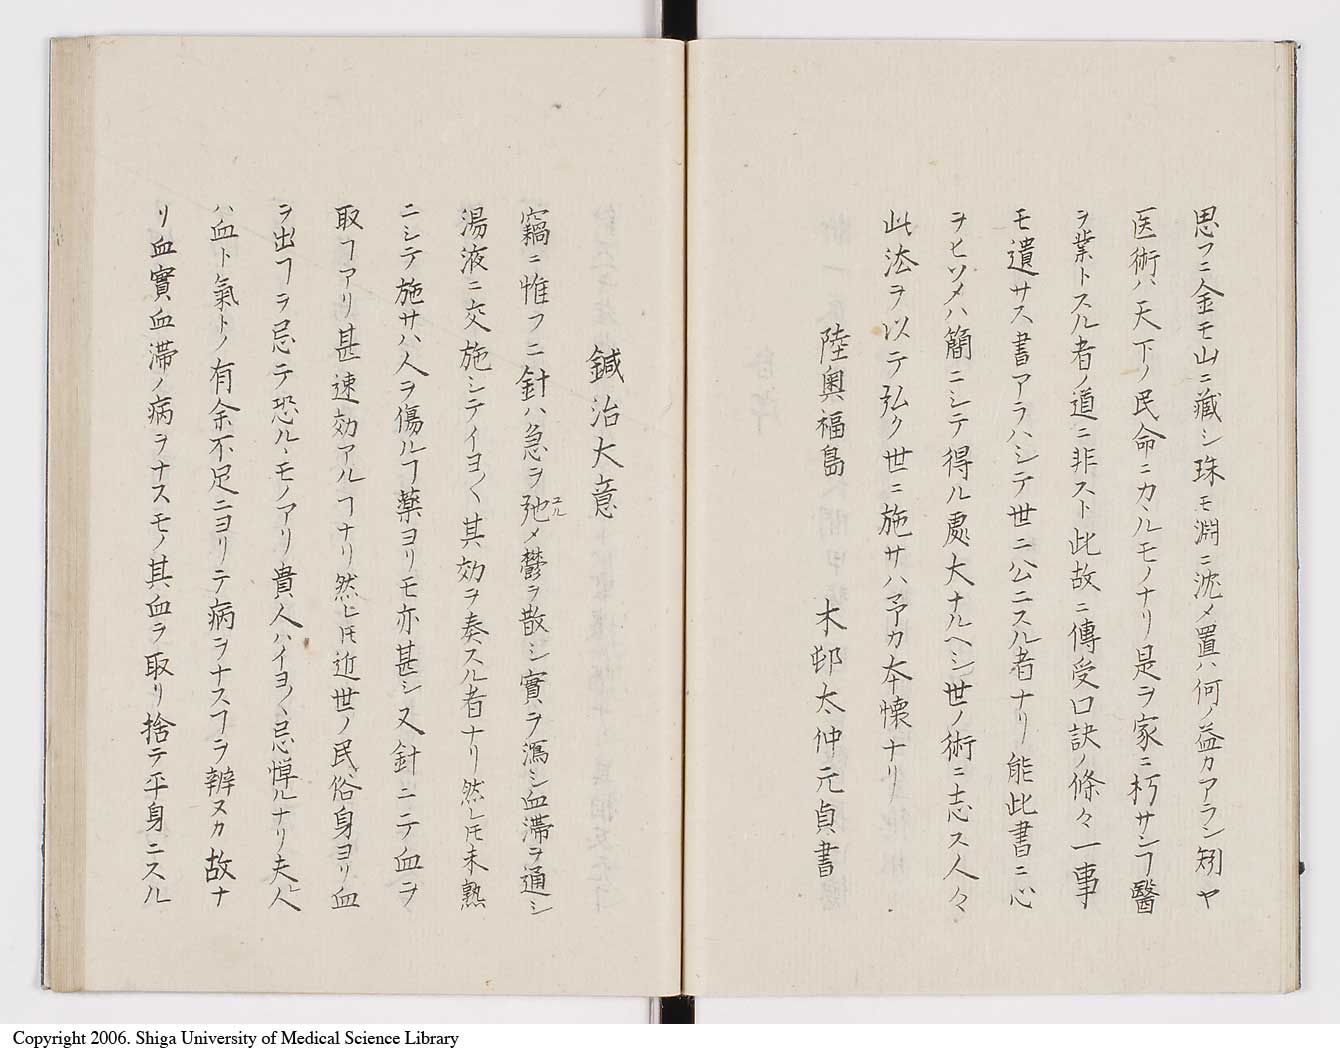 思フニ金モ山ニ藏シ珠モ淵ニ沈メ置ハ何ノ益カアラン矧ヤ
医術ハ天下ノ民命ニカヽルモノナリ是ヲ家ニ朽サンヿ醫
ヲ業トスル者ノ道ニ非スト此故ニ傳受口訣ノ條々一事
モ遺サス書アラハシテ世ニ公ニスル者ナリ能此書ニ心
ヲヒソメハ簡ニシテ得ル處大ナルヘシ世ノ術ニ志ス人々
此法ヲ以テ弘ク世ニ施サハ予カ本懐ナリ
陸奥福島 木邨太仲元貞書
鍼治大意
竊ニ惟フニ針ハ急ヲ弛メ欝ヲ散シ實ヲ瀉シ血滞ヲ通シ
ユル
湯液ニ交施シテイヨ〱其効ヲ奏スル者ナリ然㆑𪜈未熟
ニシテ施サハ人ヲ傷ルヿ藥ヨリモ亦甚シ又針ニテ血ヲ
取ヿアリ甚速効アルヿナリ然㆑𪜈近世ノ民俗身ヨリ血
ヲ出ヿヲ忌テ恐ルヽモノアリ貴人ハイヨ〱忌憚ルナリ夫人
ハ血ト氣トノ有余不足ニヨリテ病ヲナスヿヲ辨ヌカ故ナ
リ血實血滞ノ病ヲナスモノ其血ヲ取リ捨テ平身ニスル
Copyright 2006. Shiga University of Medical Science Library